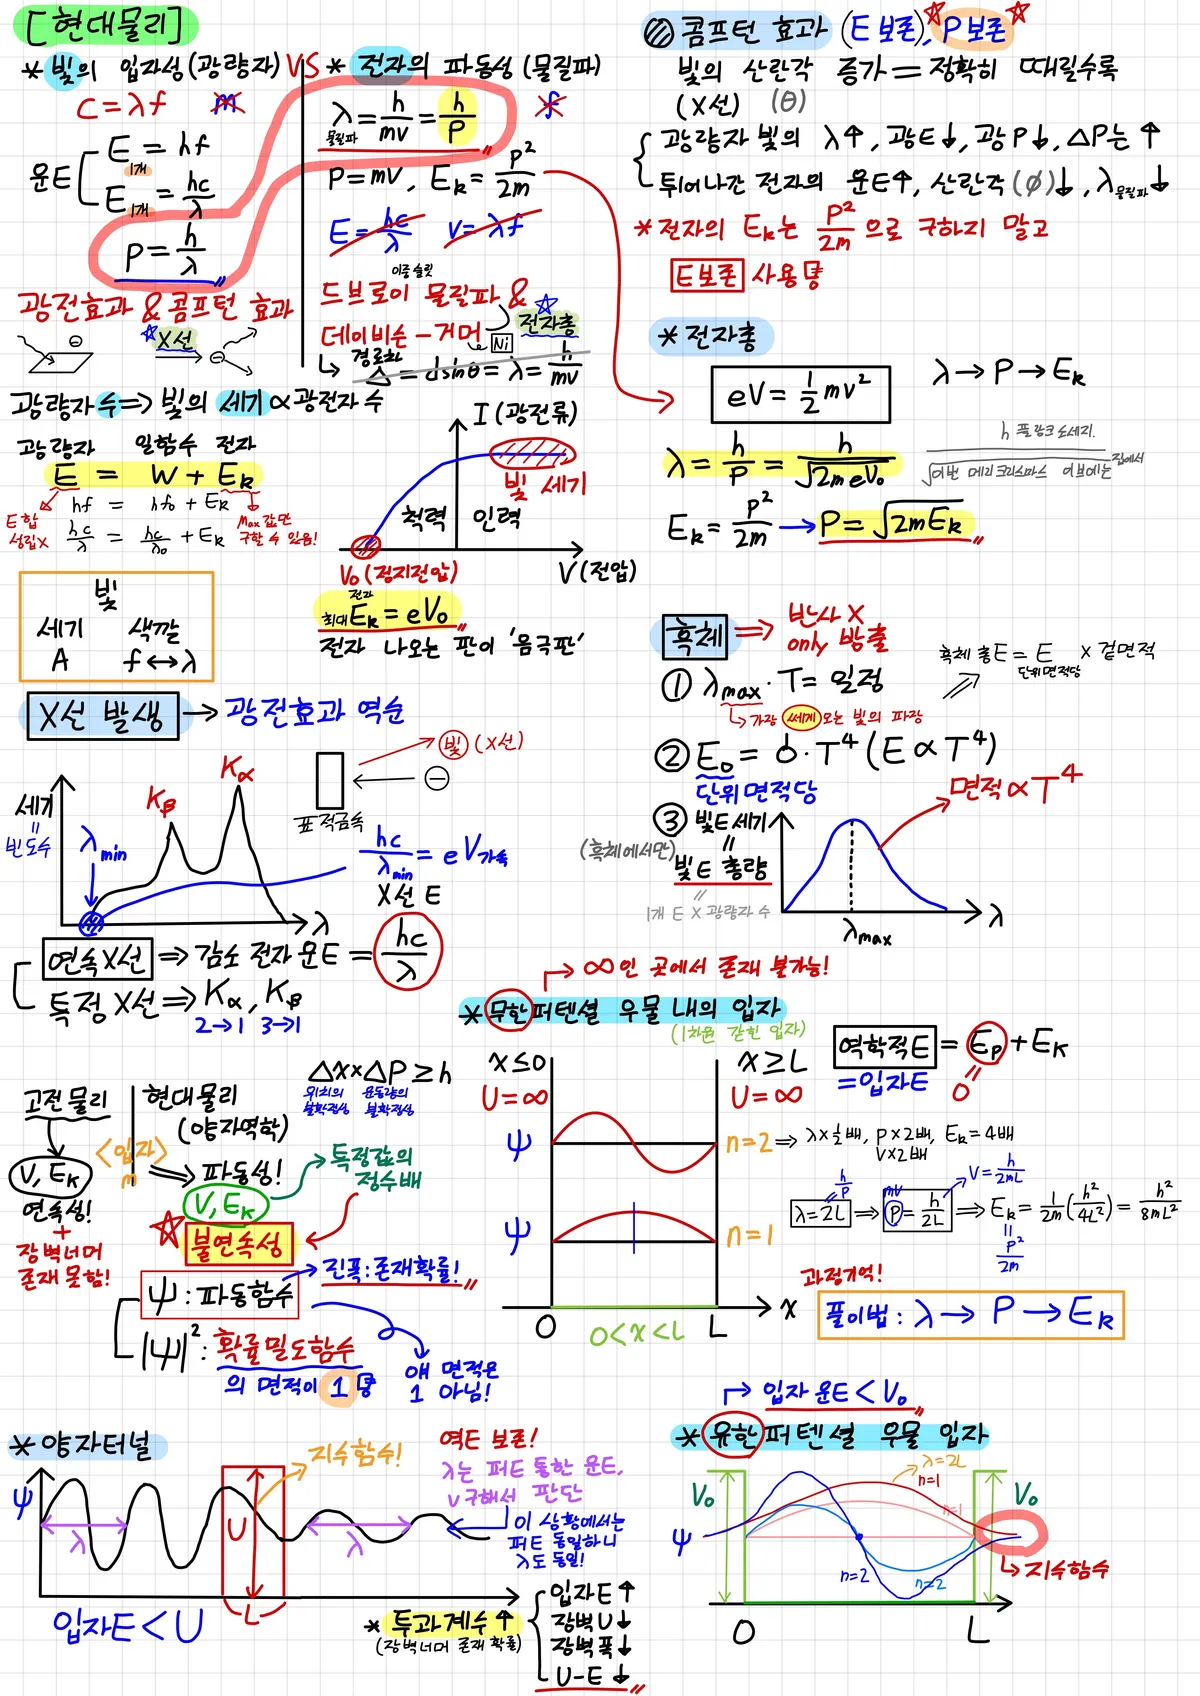 [현대물리]
* 빛의 입자성(광량자) VS * 전자의 파동성(물질파)
C = λf
m
λ = h/mv = h/P
물질파
f
운E
E = hf
1개
E = hc/λ
1개
P = h/λ
P = mv, Ek = P²/2m
E = hc/λ
v = λf
광전효과 & 콤프턴 효과
X선
이중슬릿
드브로이 물질파 &
데이비슨-거머
전자총
Ni
경로차
Δ = dsinθ = λ = h/mv
광량자 수 ⇒ 빛의 세기 ∝ 광전자 수
광량자 일함수 전자
E = W + Ek
hf = hf₀ + Ek
hc/λ = hc/λ₀ + Ek
E합
성립X
Max 값만
구할 수 있음!
빛
세기 색깔
A f↔λ
I (광전류)
빛 세기
척력 인력
V₀ (정지전압)
V (전압)
전자
최대 Ek = eV₀
전자 나오는 판이 '음극판'
X선 발생 → 광전효과 역순
세기
=
빈도수
λmin
Kβ
Kα
λ
빛 (X선)
표적금속
hc/λmin = eV가속
X선 E
연속X선 ⇒ 감소 전자 운E = hc/λ
특정 X선 ⇒ Kα, Kβ
2→1 3→1
콤프턴 효과 (E보존), P보존
빛의 산란각 증가 = 정확히 때릴수록
(X선) (θ)
광량자 빛의 λ↑, 광E↓, 광P↓, ΔP는 ↑
튀어나간 전자의 운E↑, 산란각(φ)↓, λ물질파↓
* 전자의 Ek는 P²/2m 으로 구하지 말고
E보존 사용
* 전자총
eV = ½mv²
λ→P→Ek
λ = h/P = h/√2meV₀
h 플랑크 도세지.
√이번 메리크리스마스 이브에는 집에서
Ek = P²/2m → P = √2mEk
흑체 ⇒ 반사 X
only 방출
① λmax · T = 일정
가장 쎄게 오는 빛의 파장
흑체 총E = E × 겉면적
단위면적당
② E₀ = σ·T⁴ (E ∝ T⁴)
단위면적당
면적 ∝ T⁴
③ 빛E세기
(흑체에서만)
=
빛E 총량
=
1개 E × 광량자 수
λmax
λ
∞인 곳에서 존재 불가능!
* 무한 퍼텐셜 우물 내의 입자
(1차원 갇힌 입자)
x≤0 x≥L
U=∞ U=∞
ψ
n=2 ⇒ λ×½배, P×2배, Ek=4배
V×2배
ψ
n=1
0 L x
0<x<L
역학적E = Ep + Ek
=입자E
0
λ=2L ⇒ P = h/2L ⇒ Ek = 1/2m(h²/4L²) = h²/8mL²
h/P
mv
V = h/2mL
P²/2m
과정기억!
풀이법: λ → P → Ek
고전물리
V, Ek
연속성!
+
장벽너머
존재 못함!
<입자>
m
현대물리
(양자역학)
⇒ 파동성!
V, Ek
불연속성
특정값의
정수배
Δx×ΔP ≥ h
위치의 불확정성 운동량의 불확정성
ψ : 파동함수
진폭: 존재확률!
|ψ|² : 확률밀도함수
의 면적이 1
얘 면적은
1 아님!
* 양자터널
지수함수!
ψ
λ
U
λ
L
입자E < U
역E 보존!
λ는 퍼E 통한 운E,
v구해서 판단
이 상황에서는
퍼E 동일하니
λ도 동일!
* 투과계수↑
(장벽너머 존재 확률)
입자E↑
장벽U↓
장벽폭↓
U-E↓
입자 운E < V₀
* 유한 퍼텐셜 우물 입자
λ=2L
n=1
n=1
V₀
V₀
ψ
n=2
n=2
지수함수
0 L